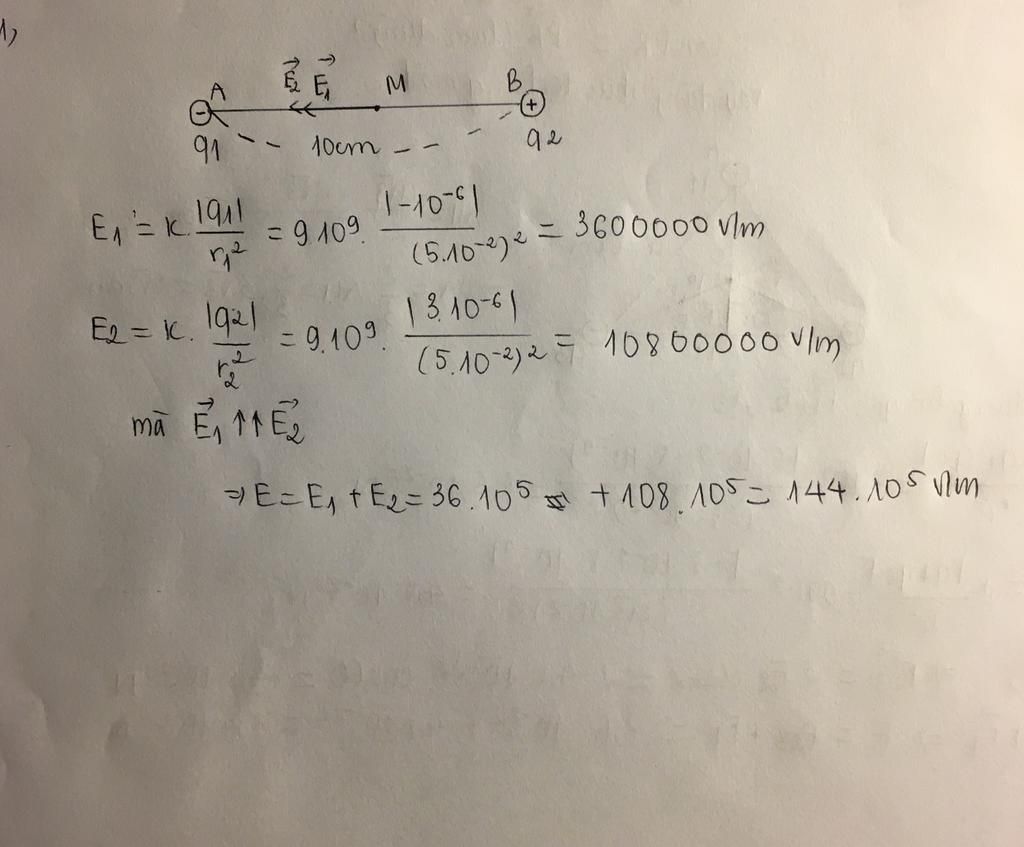 1,
A E⃗₂ E⃗₁ M B
- +
q1 10cm q2
E₁ = k. |q1| / r₁² = 9.10⁹. |-10⁻⁶| / (5.10⁻²)² = 3600000 V/m
E₂ = k. |q2| / r₂² = 9.10⁹. |3.10⁻⁶| / (5.10⁻²)² = 10800000 V/m
mà E⃗₁ ↑↑ E⃗₂
⇒ E = E₁ + E₂ = 36.10⁵ + 108.10⁵ = 144.10⁵ V/m